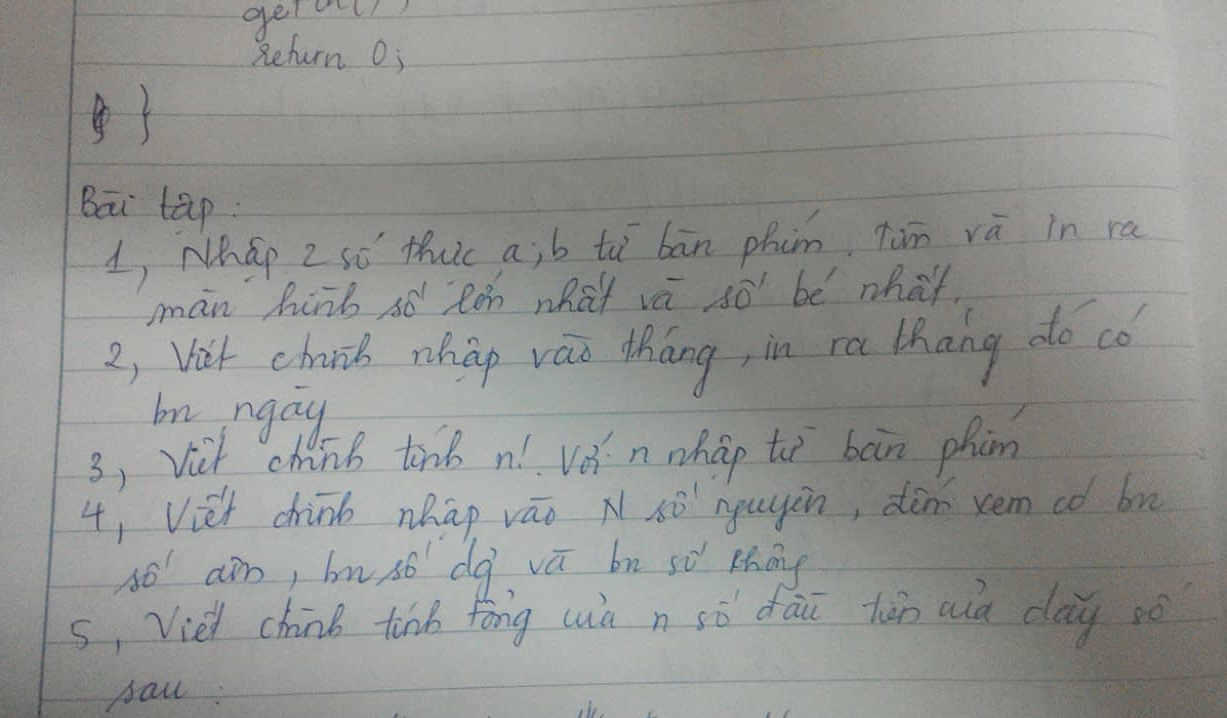 getch();
return 0;
}
Bài tập:
1, Nhập 2 số thực a;b từ bàn phím. Tìm và in ra
màn hình số lớn nhất và số bé nhất.
2, Viết chrình nhập vào tháng, in ra tháng đó có
bn ngày
3, Viết chrình tính n!. Với n nhập từ bàn phím
4, Viết chrình nhập vào N số nguyên, đếm xem có bn
số âm, bn số dg và bn số không
5, Viết chrình tính tổng của n số đầu tiên của dãy số
sau: